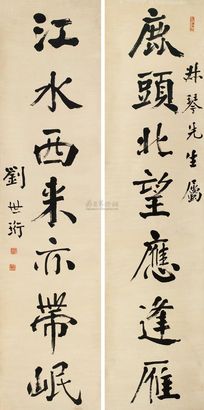 鹿頭北望應逢雁
㷂琴先生屬
江水西來亦帶岷
劉世珩